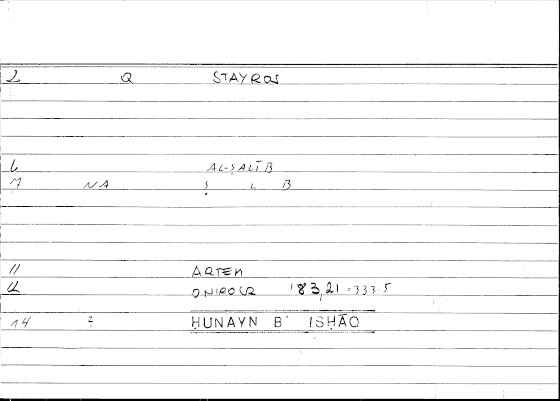 2 Q STAYROS
6 AL-ṢALĪB
7 NA Ṣ L B
11 ARTEM
12 ONIROCR 183,21 = 333.5
14 2 ḤUNAYN B' ISḤĀQ